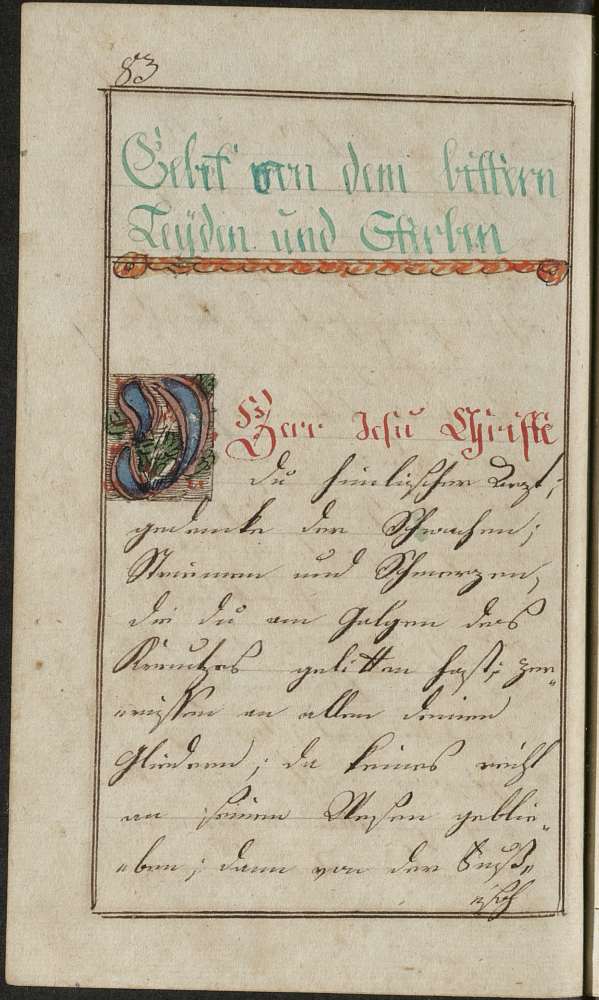 83
Gebet von dem bittern
Leyden und Sterben
O Herr Jesu Christe
du himlischer Arzt;
gedencke der Schwachen;
Striemen und Schmerzen,
die du am Galgen des
Kreutzes gelitten hast; zer„
„rissen an allen deinen
Gliedern; da keines recht
an seinem Wesen geblie„
„ben; dann von der Fuß„